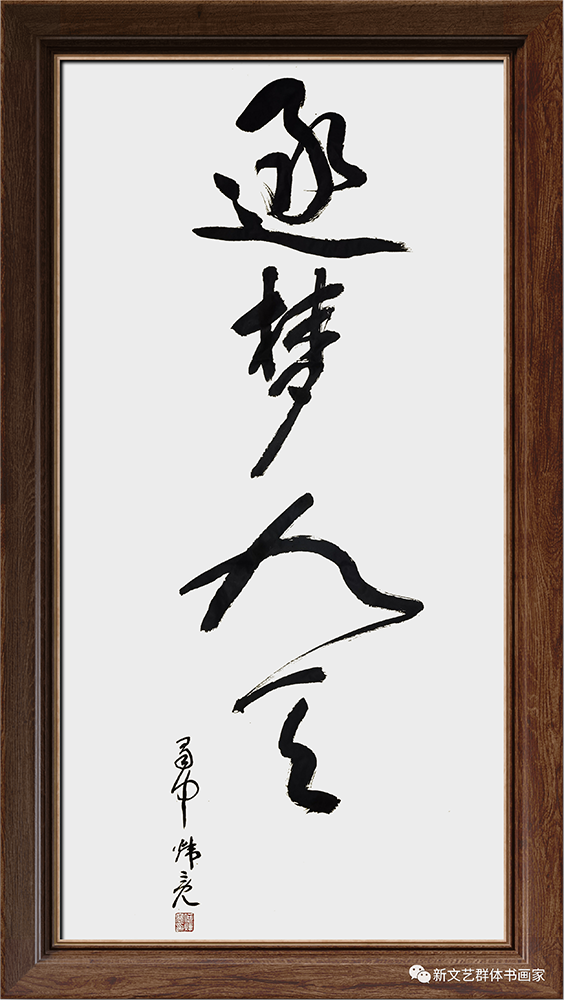 逐梦九天
蜀中炜亮
新文艺群体书画家